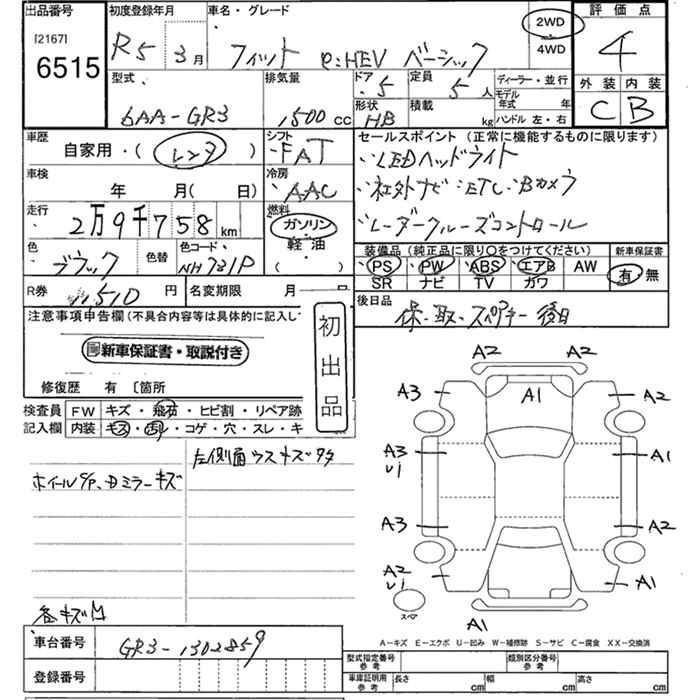 出品番号 初度登録年月 車名・グレード 2WD 評価点
[2167] 4WD
6515 R5 3月 フィット e:HEV ベーシック 4
型式 排気量 ドア 5 定員 5人 ディーラー・並行 外装 内装
6AA-GR3 1500cc 形状 HB 積載 kg モデル年式 年 ハンドル 左・右 C B
車歴 自家用・(レンタ) シフト FAT セールスポイント (正常に機能するものに限ります)
車検 年 月( 日) 冷房 AAC LEDヘッドライト
走行 2万9千758km 燃料 ガソリン 軽油 ( ) 社外ナビ ETC Bカメラ
レーダークルーズコントロール
色 ブラック 色替 色コード NH731P 装備品 (純正品に限り〇をつけてください) 新車保証書
PS PW ABS エアB AW 有・無
SR ナビ TV カワ
R券 11,510円 名変期限 月 後日品
保・取・スペアキー 後日
注意事項申告欄(不具合内容等は具体的に記入し 初出品
新車保証書・取説付き
修復歴 有 〔箇所
検査員 FW キズ・飛石・ヒビ割・リペア跡
記入欄 内装 キズ・汚れ・コゲ・穴・スレ・キ
左側面ウスキズ多々
ホイールキズ、ドアミラーキズ
A2 A2
A3 A1 A2
A3 U1 A1
A3 A2
A2 U1 A1
スペア A1
各キズ凹
A-キズ E-エクボ U-凹み W-補修跡 S-サビ C-腐食 XX-交換済
車台番号 GR3-1302859
型式指定番号 参考 類別区分番号 参考
登録番号
車庫証明用 参考 長さ cm 幅 cm 高さ cm